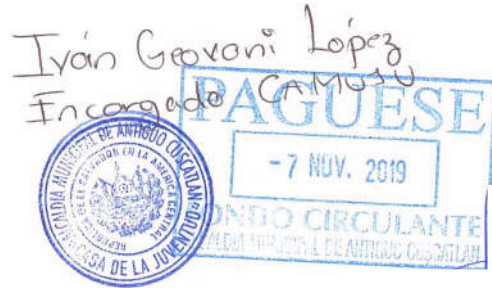 Iván Geovani López
Encargado CAMUJU
PAGUESE
- 7 NOV. 2019
FONDO CIRCULANTE
ALCALDIA MUNICIPAL DE ANTIGUO CUSCATLAN
ALCALDIA MUNICIPAL DE ANTIGUO CUSCATLAN
REPUBLICA DE EL SALVADOR EN LA AMERICA CENTRAL
CASA DE LA JUVENTUD